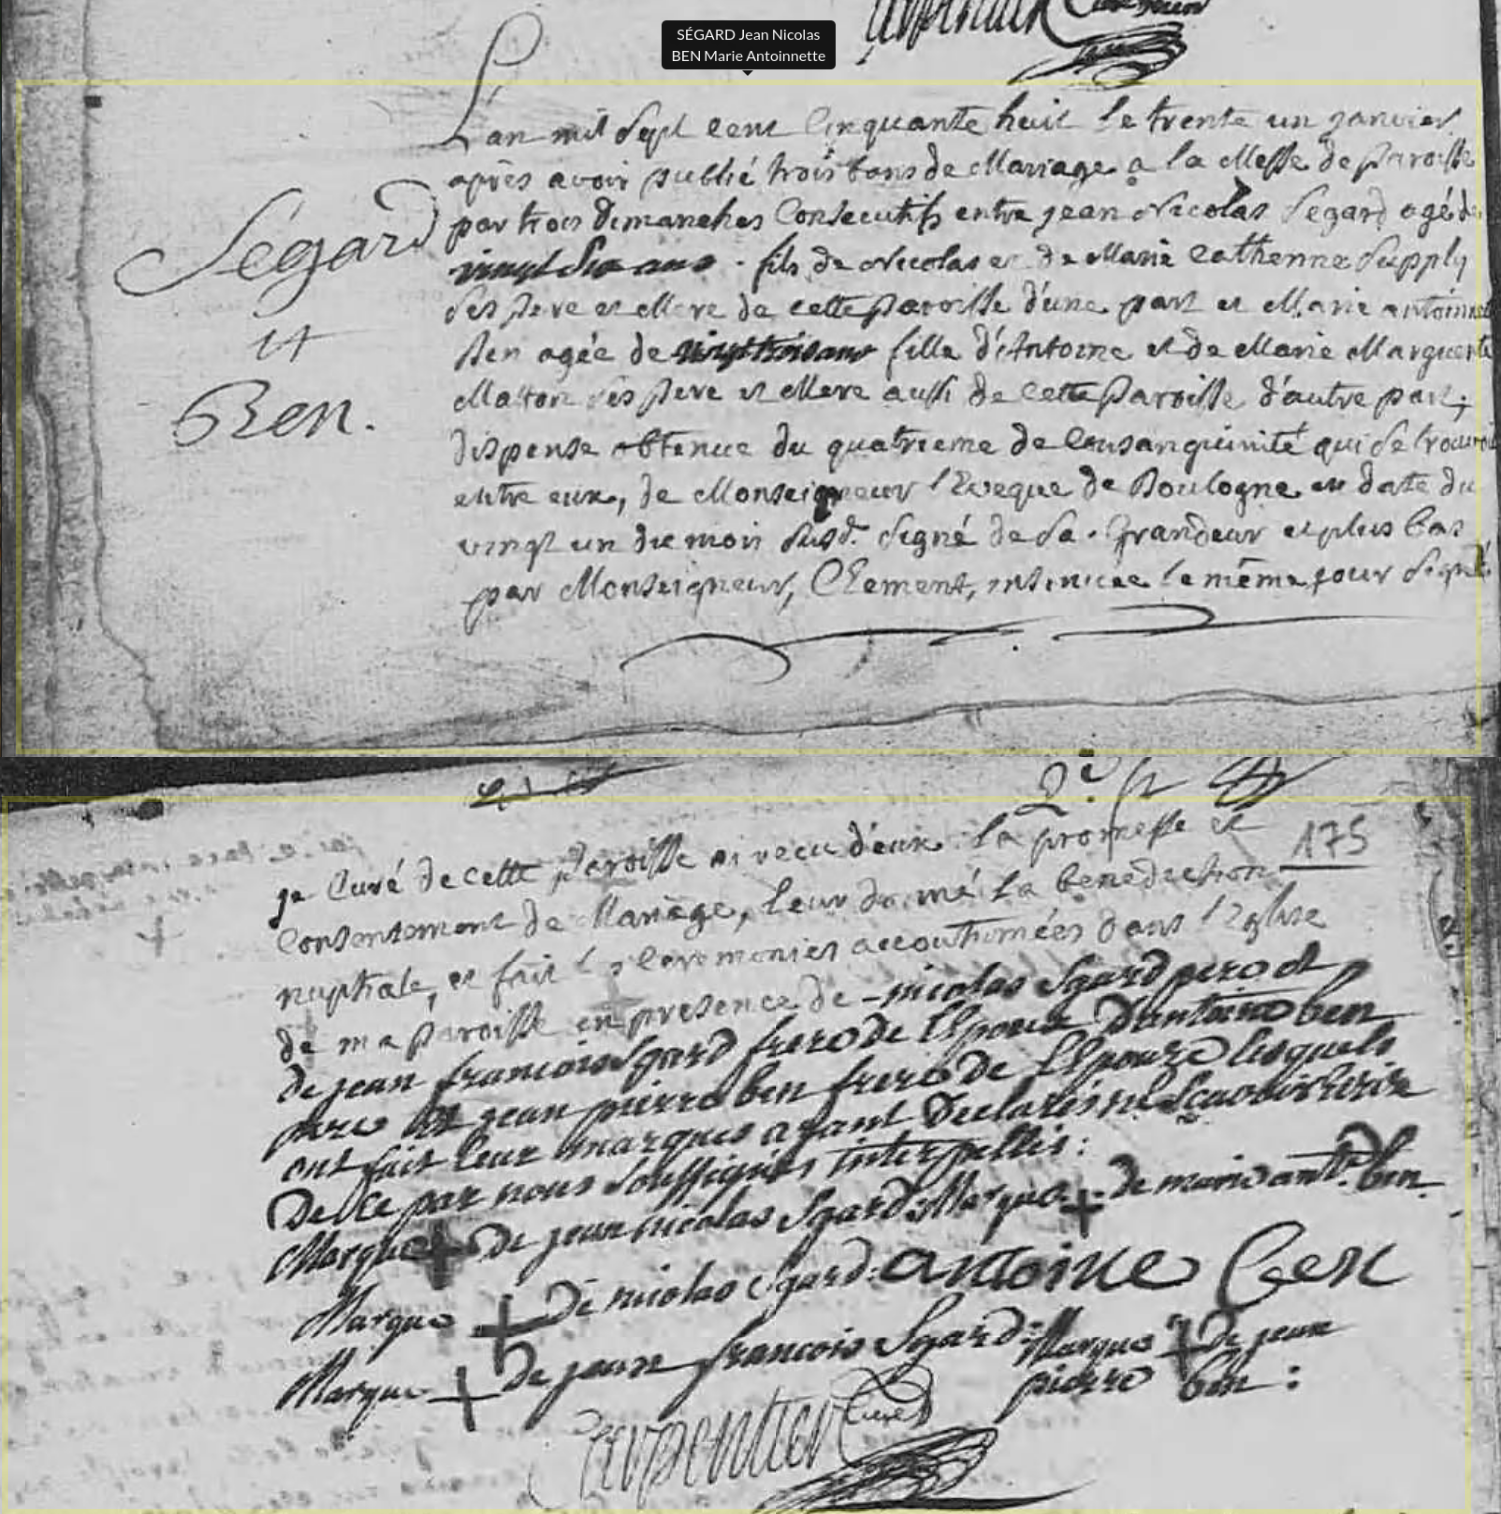 SÉGARD Jean Nicolas
BEN Marie Antoinnette
L'an mil sept cent cinquante huit le trente un janvier
après avoir publié trois bans de Mariage a la Messe de paroisse
par trois dimanches Consecutifs entre jean Nicolas Segard agé de
vingt six ans . fils de Nicolas et de Marie Catherinne Supply
ses pere et Mere de cette paroisse d'une part et Marie antoinnet
Ben agée de vingt trois ans fille d'Antoine et de Marie Marguerite
ses pere et Mere aussi de cette paroisse d'autre part;
dispense obtenue du quatrieme de Consanguinité qui se trouvoit
entre eux, de Monseigneur l'Eveque de Boulogne en date du
vingt un du mois susd. signé de sa . grandeur et plus bas
par Monseigneur, Clement, insinuée le même jour signé
Segard
et
Ben.
175
je Curé de cette paroisse ai recu d'eux la promesse et
Consentement de Mariage, leur donné la benediction
nuptiale, et fait les Ceremonies accoutumées dans l'Eglise
de ma paroisse en presence de - nicolas Sgard pere et
de jean francois Sgard frere de l'Epoux D'antoine ben
pere et jean pierre ben frere de l'Epouze lesquels
ont fait leur marques ayant Declarés ne scavoir ecrire
De ce par nous soussignés interpellés :
Marque + de jean nicolas Sgard : Marque + de marie ant. ben
Marque + de nicolas Sgard : antoine ben
Marque + de jean francois Sgard : Marque + de jean
pierre ben :
Carpentier Curé